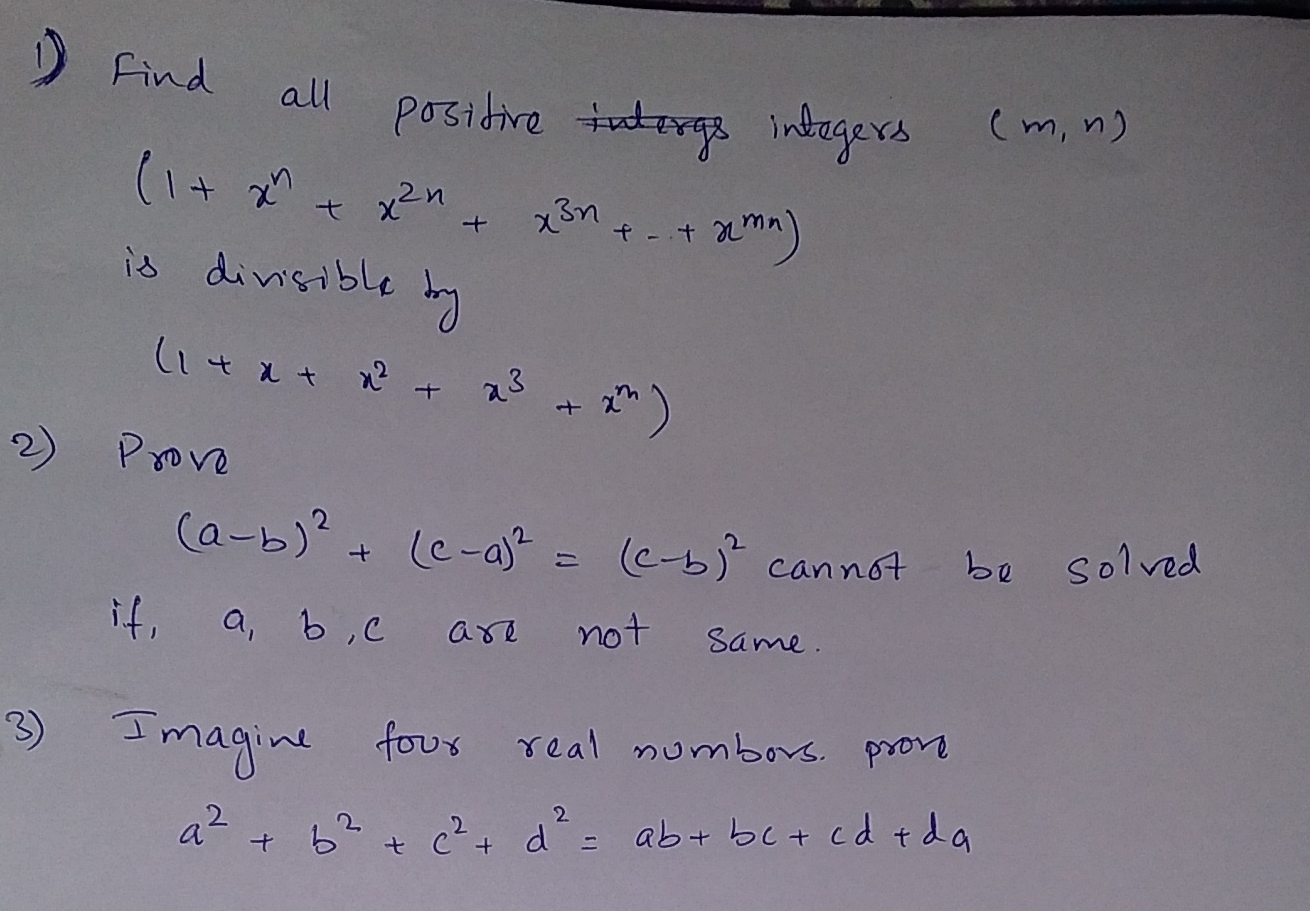 1) Find all positive intergs integers (m, n)
(1 + xⁿ + x²ⁿ + x³ⁿ + - . + xᵐⁿ)
is divisible by
(1 + x + x² + x³ + xᵐ)
2) Prove
(a-b)² + (c-a)² = (c-b)² cannot be solved
if, a, b, c are not same.
3) Imagine four real numbors. prove
a² + b² + c² + d² = ab + bc + cd + da